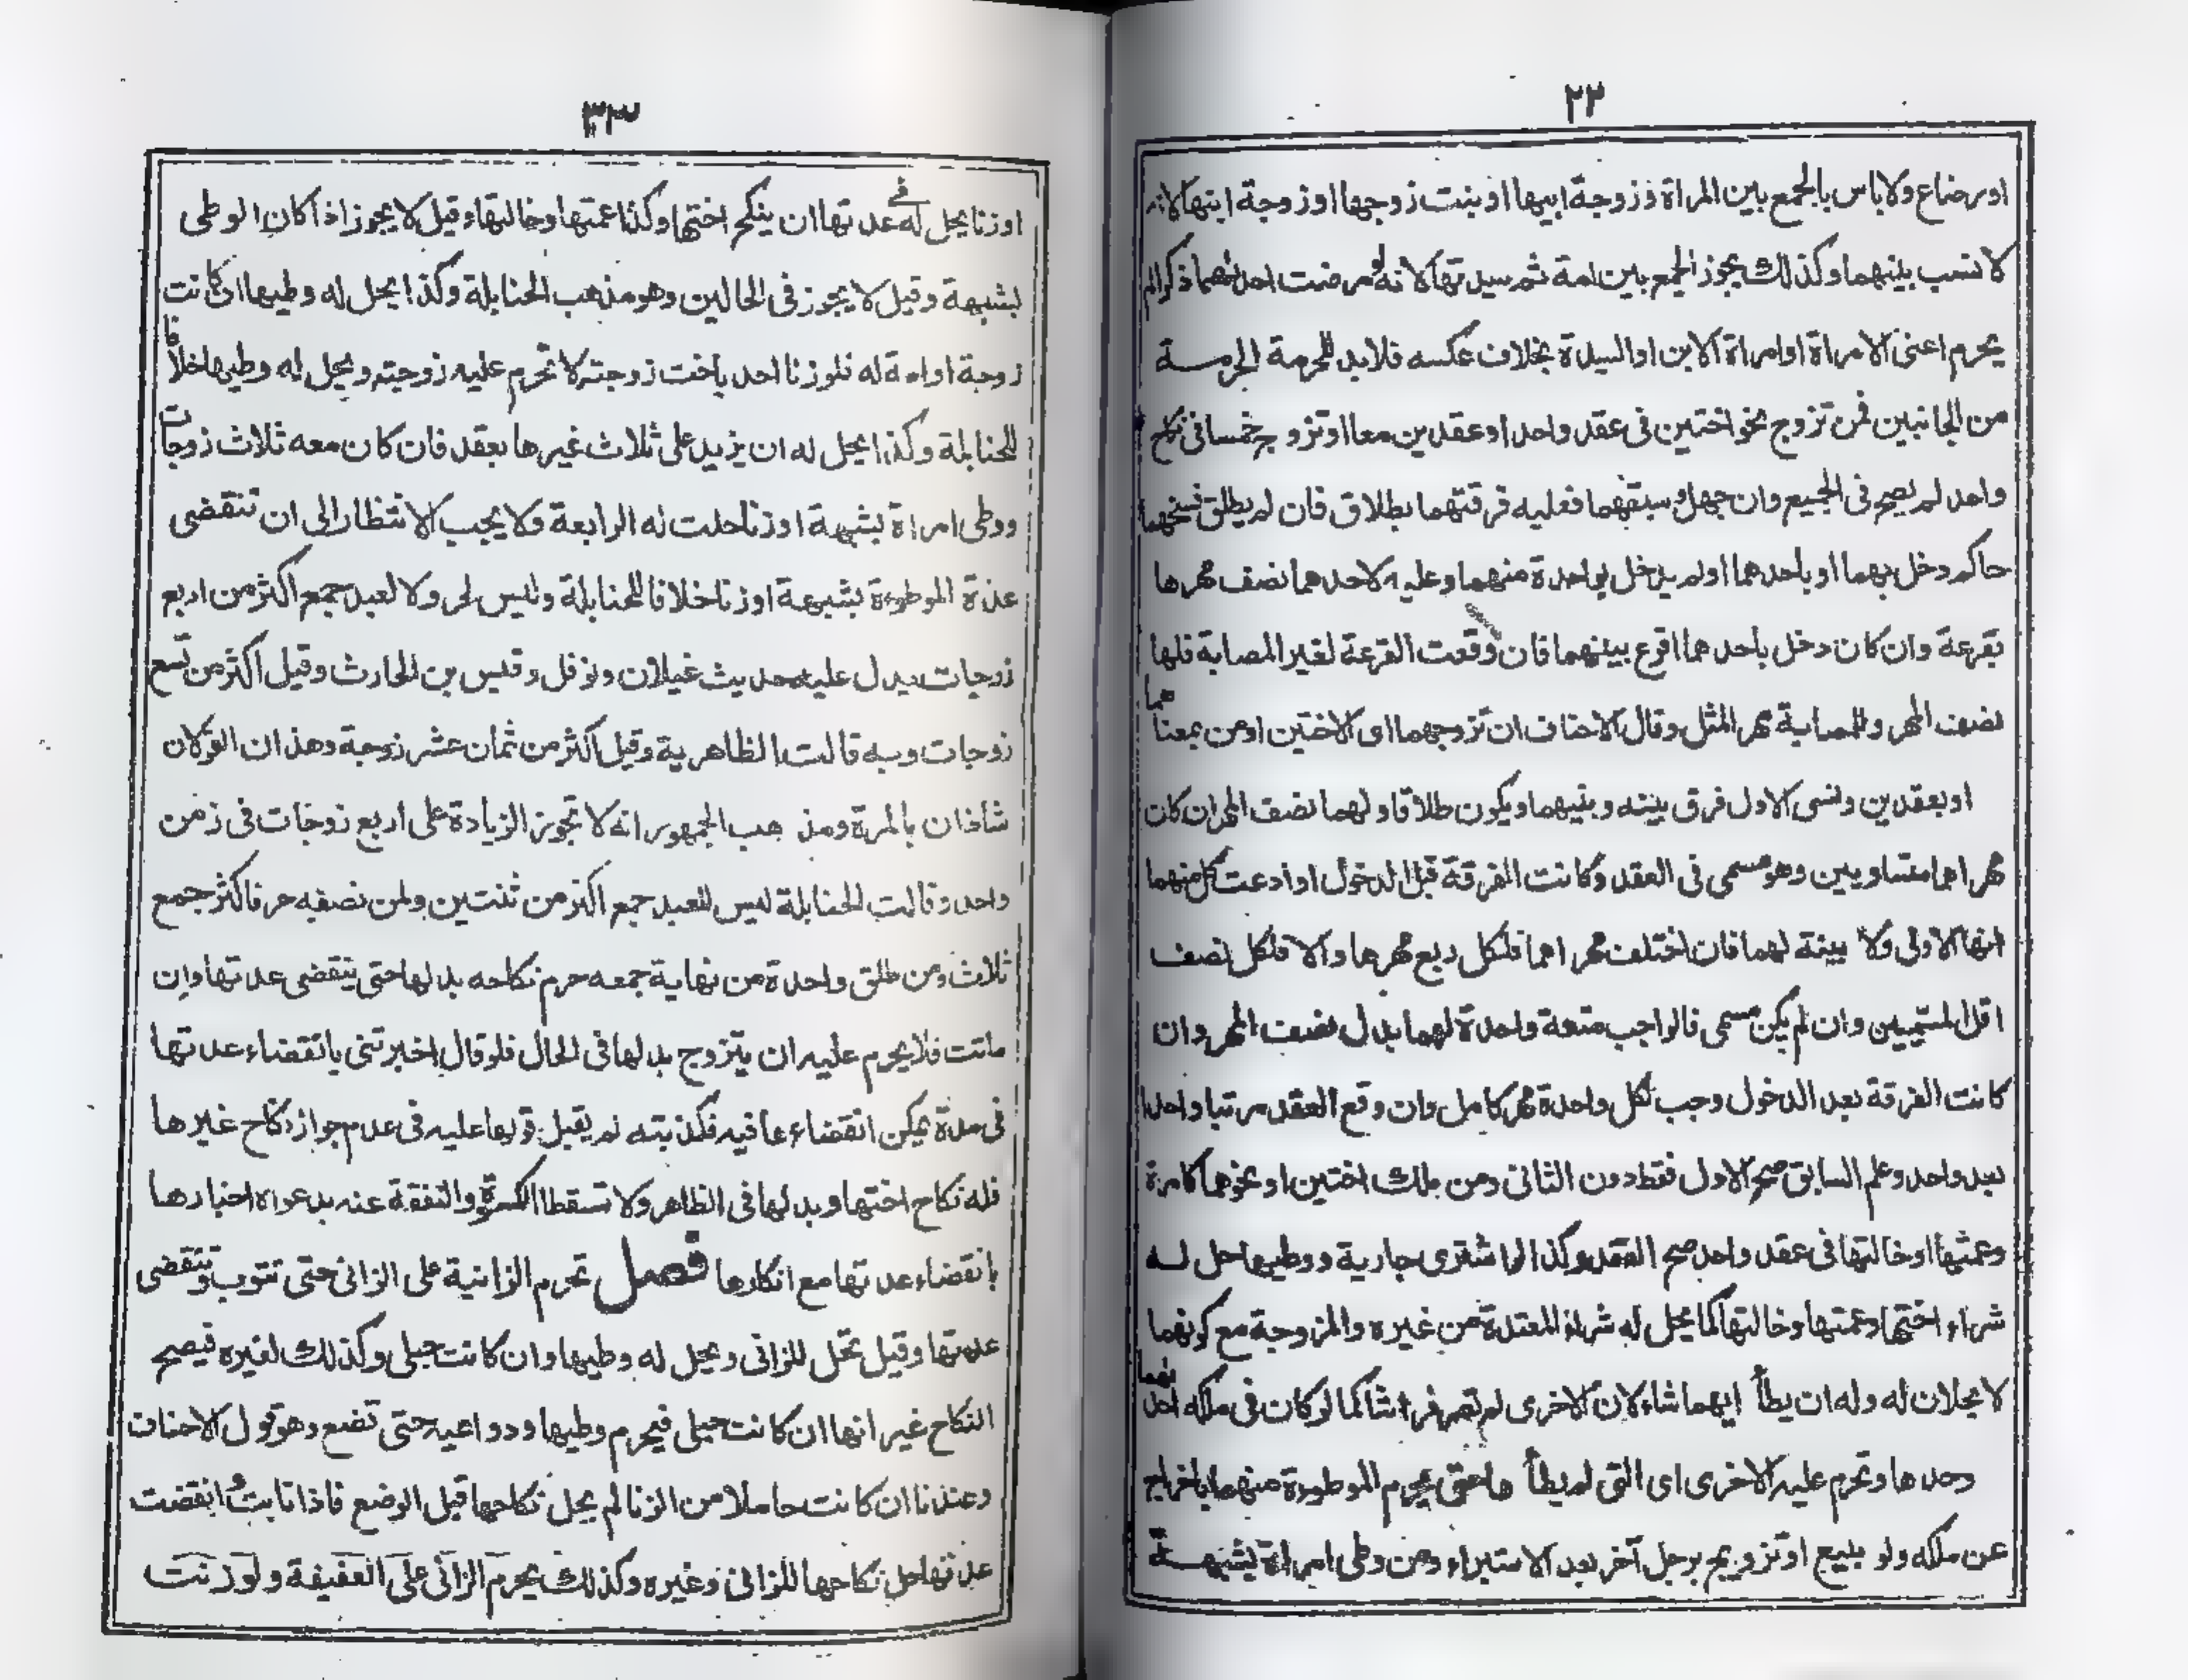 ٢٢
اورضاع ولاباس بالجمع بين المراة وزوجة ابيها او بنت زوجها او زوجة ابنها لانه
لا نسب بينهما وكذلك يجوز الجمع بين امة ثم سيدتها لانه لو فرضت احدهما ذكرا لم
يحرم اعنى الامراة او امراة الابن او السيدة بخلاف عكسه فلابد للحرمة الحرمة
من الجانبين فمن تزوج نحو اختين فى عقد واحد او عقدين معا او تزوج خمسا فى نكاح
واحد لم يصح فى الجميع وان جهل سبقهما فعليه فرقتهما بطلاق فان لم يطلق فسخهما
حاكم دخل بهما او باحدهما اولم يدخل بواحدة منهما وعليه لاحدهما نصف مهرها
بقرعة وان كان دخل باحدهما اقرع بينهما فان وقعت القرعة لغير المصابة فلها
نصف المهر وللمصابة مهر المثل وقال الاحناف ان تزوجهما اى الاختين اومن بمعناهما
او بعقدين ونسى الاول فرق بينه وبينهما ويكون طلاقا ولهما نصف المهر ان كان
مهراهما متساويين وهو مسمى فى العقد وكانت الفرقة قبل الدخول او ادعت كل منهما
انها الاولى ولا بينة لهما فان اختلف مهراهما فلكل ربع مهرها والا فلكل نصف
اقل المسميين وان لم يكن مسمى فالواجب متعة واحدة لهما بدل نصف المهر وان
كانت الفرقة بعد الدخول وجب لكل واحدة مهر كامل وان وقع العقد مرتبا واحدا
بعد واحد وعلم السابق صح الاول فقط دون الثانى ومن ملك اختين او نحوهما كامرة
وعمتها او خالتها فى عقد واحد صح العقد وكذا لو اشترى جارية ووطيها حل لـه
شراء اختها وعمتها وخالتها كما يحل له شراء المعتدة من غيره والمزوجة مع كونهما
لا يحلان له وله ان يطأ ايهما شاء لان الاخرى لم تصر فراشا كما لو كان فى ملكه احدٰهما
وحدها وتحرم عليه الاخرى اى التى لم يطأها حتى يحرم الموطوءة منهما باخراج
عن ملكه ولو ببيع او تزويج برجل آخر بعد الاستبراء ومن وطى امراة بشبهـة
٣٣
اوزنا يحل له فى عدتها ان ينكح اختها وكذا عمتها وخالتها وقيل لا يجوز اذا كان الوطى
بشبهة وقيل لا يجوز فى الحالين وهو مذهب الحنابلة وكذا يحل له وطيها ان كانت
زوجة او امة له فلو زنا احد باخت زوجته لا تحرم عليه زوجته ويحل له وطيها خلافا
للحنابلة وكذا يحل له ان يزيد على ثلاث غيرها بعقد فان كان معه ثلاث زوجات
ووطى امراة بشبهة او زنا حلت له الرابعة ولا يجب الانتظار الى ان تنقضى
عدة الموطوءة بشبهة اوزنا خلافا للحنابلة وليس لحر ولا لعبد جمع اكثر من اربع
زوجات يدل عليه حديث غيلان ونوفل وقيس بن الحارث وقيل اكثر من تسع
زوجات وبه قالت الظاهرية وقيل اكثر من ثمان عشر زوجة وهذان القولان
شاذان بالمرة ومذهب الجمهور انه لا تجوز الزيادة على اربع زوجات فى زمن
واحد وقالت الحنابلة ليس للعبد جمع اكثر من ثنتين ولمن نصفه حر فاكثر جمع
ثلاث ومن طلق واحدة من نهاية جمعه حرم نكاحه بدلها حتى تنقضى عدتها وان
ماتت فلا يحرم عليه ان يتزوج بدلها فى الحال فلو قال اخبرتنى بانقضاء عدتها
فى مدة يمكن انقضاءها فيه فكذبته لم يقبل قولها عليه فى عدم جواز نكاح غيرها
فله نكاح اختها وبدلها فى الظاهر ولا تسقطا الكسوة والنفقة عنه بدعواه اخبارها
بانقضاء عدتها مع انكارها فصل تحرم الزانية على الزانى حتى تتوب وتنقضى
عدتها وقيل تحل للزانى ويحل له وطيها وان كانت حبلى وكذلك لغيره فيصح
النكاح غير انها ان كانت حبلى فيحرم وطيها ودواعيه حتى تضع وهو قول الاحناف
وعندنا ان كانت حاملا من الزنا لم يحل نكاحها قبل الوضع فاذا تابت وانقضت
عدتها حل نكاحها للزانى وغيره وكذلك يحرم الزانى على العفيفة ولو زنت